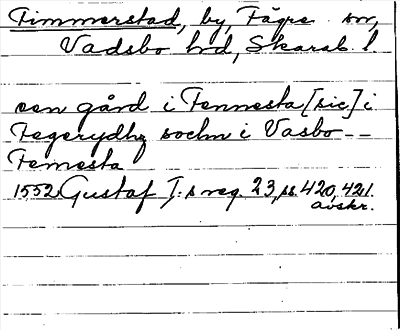 Timmerstad, by, Fägre sn,
Vadsbo hd, Skarab. l
een gård i Temmesta [sic] i
Fegerydhz sochn i Vasbo --
Temesta
1552 Gustaf I:s reg. 23, ss. 420, 421.
avskr.